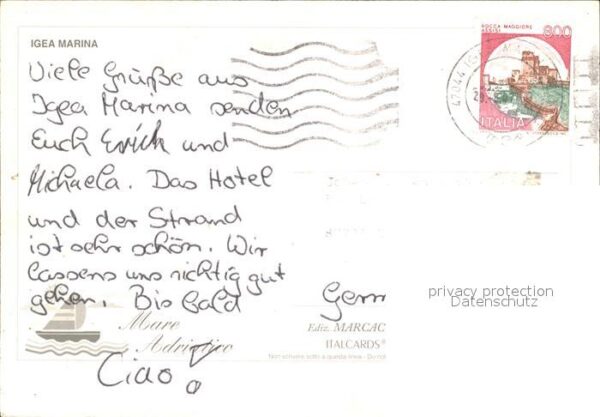 IGEA MARINA
Viele Grüße aus
Igea Marina senden
Euch Erich und
Michaela. Das Hotel
und der Strand
ist sehr schön. Wir
lassens uns richtig gut
gehen. Bis bald
Ciao!
Mare
Adriatico
Ediz. MARCAC
ITALCARDS®
Non scrivere sotto a questa linea - Do not
ROCCA MAGGIORE
ASSISI
800
ITALIA
47044 IGEA
Germ
privacy protection
Datenschutz